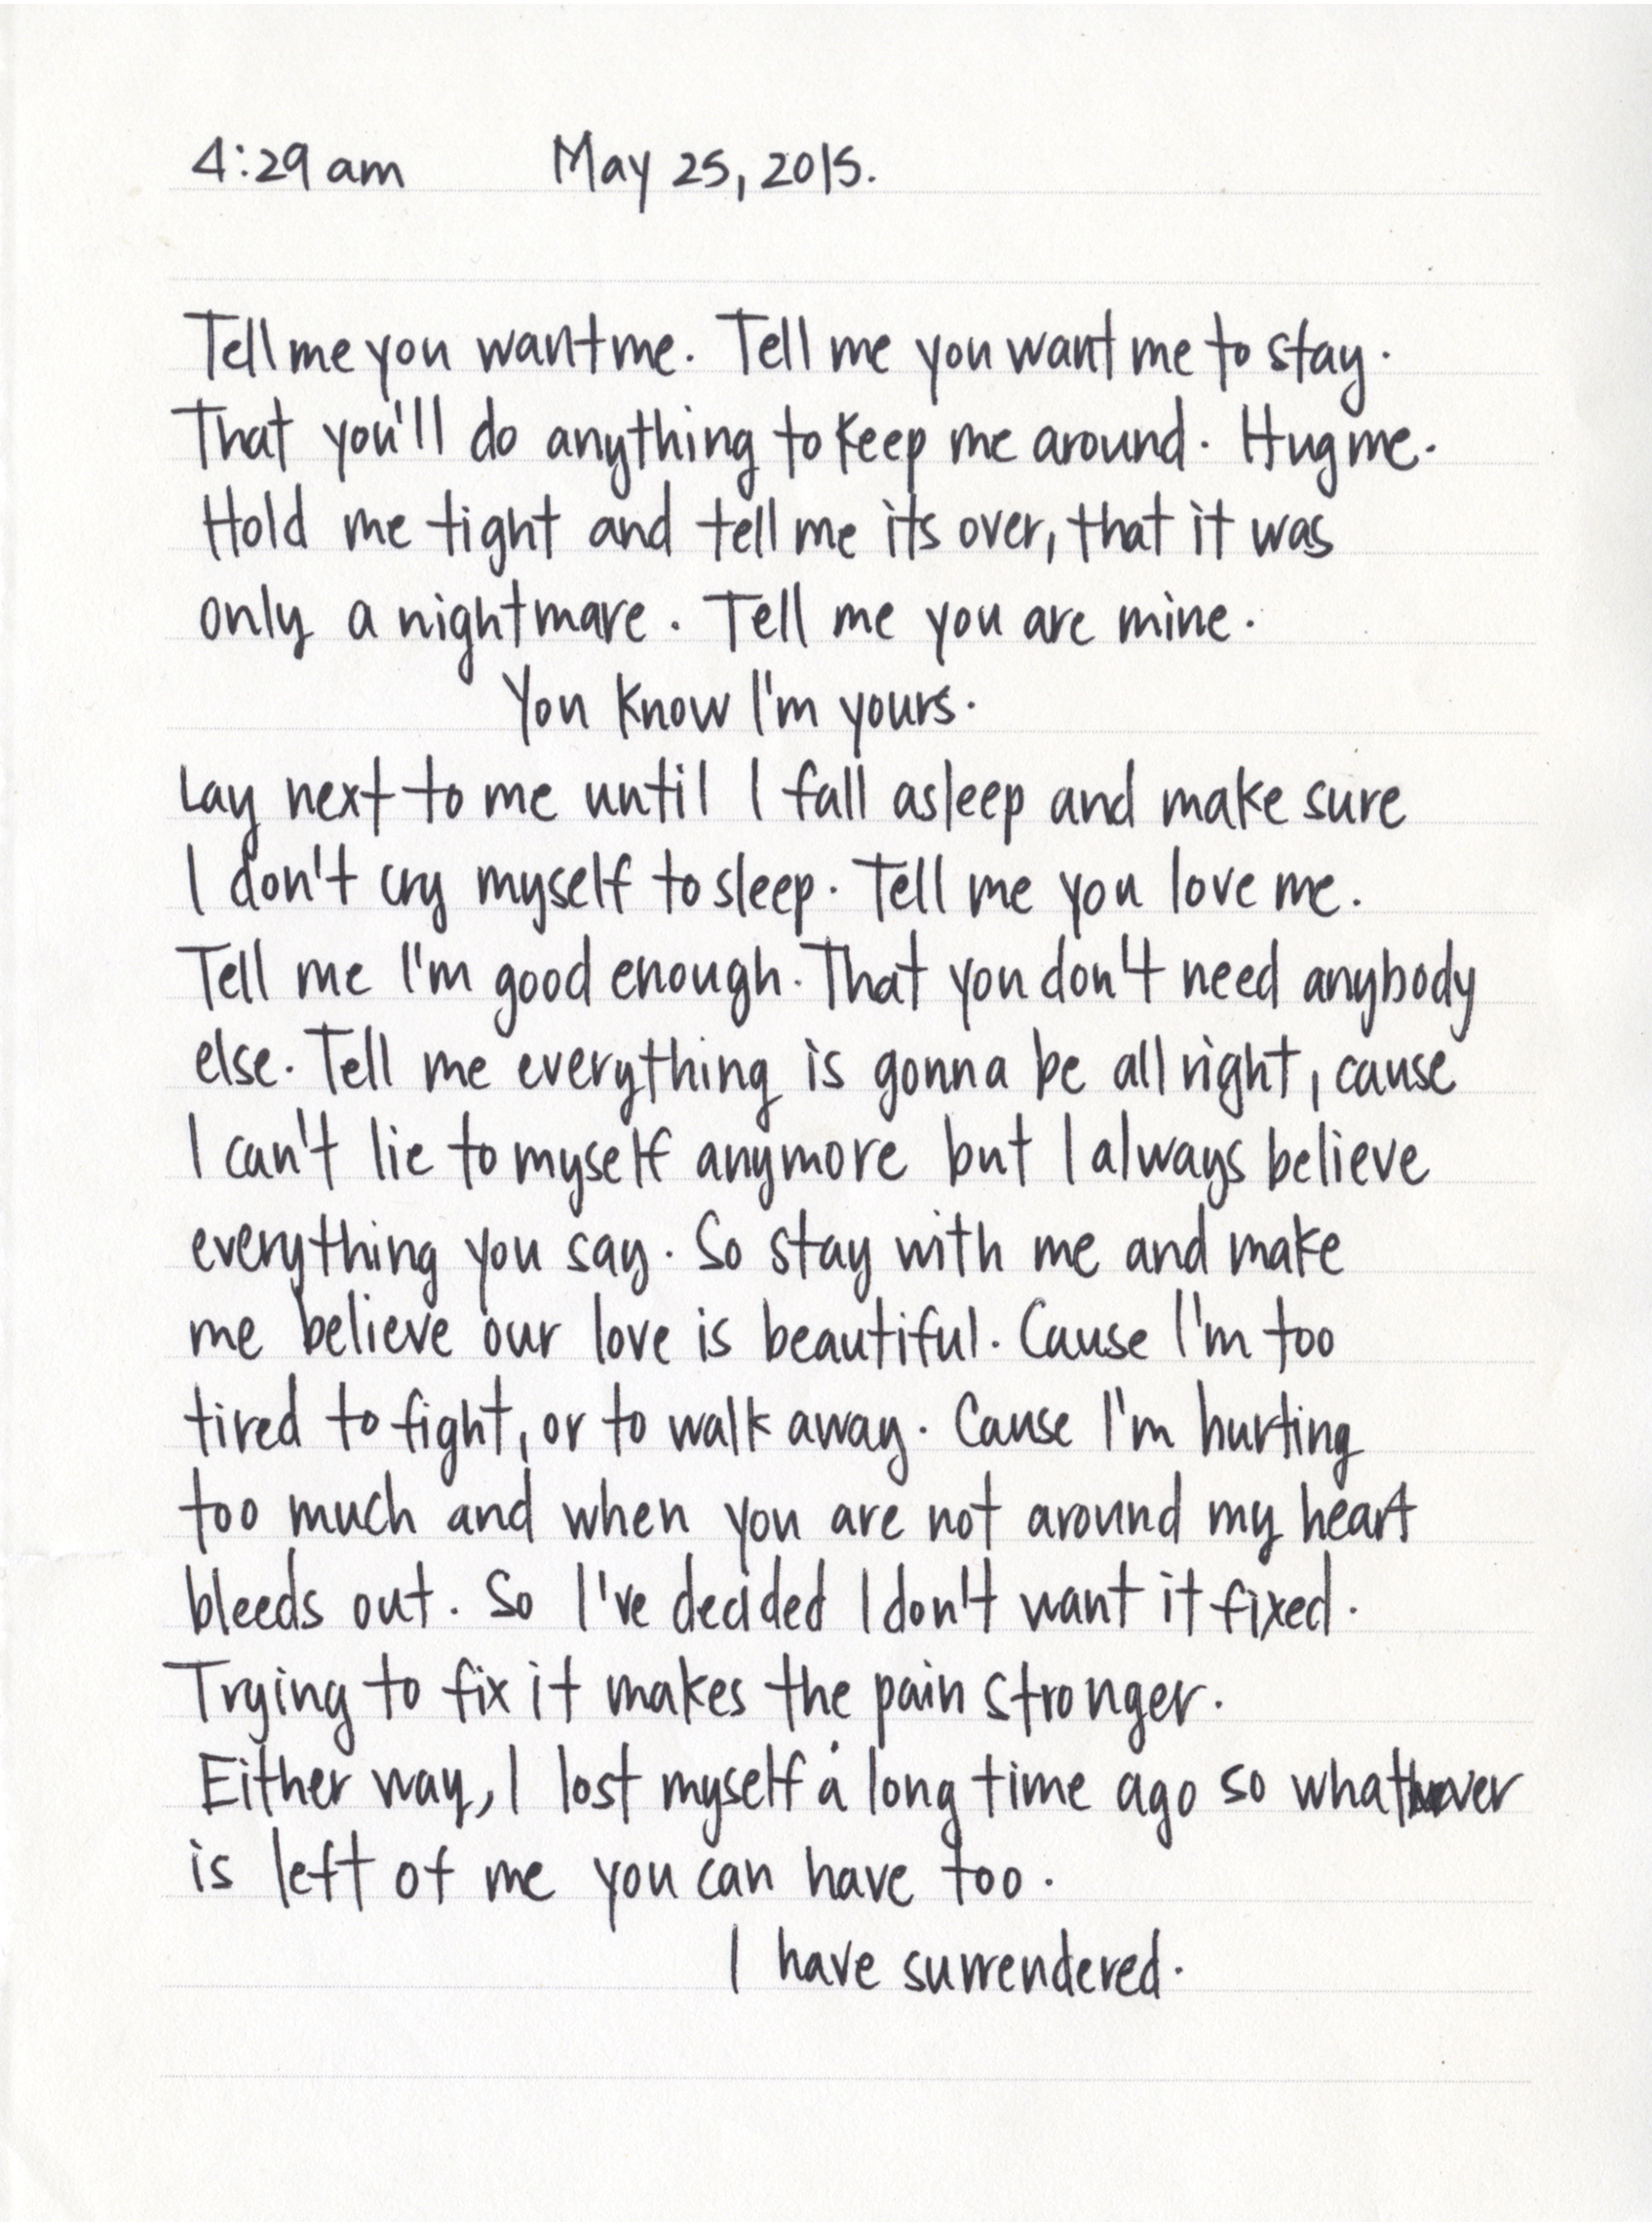 4:29 am May 25, 2015.
Tell me you want me. Tell me you want me to stay.
That you'll do anything to keep me around. Hug me.
Hold me tight and tell me its over, that it was
only a nightmare. Tell me you are mine.
You know I'm yours.
Lay next to me until I fall asleep and make sure
I don't cry myself to sleep. Tell me you love me.
Tell me I'm good enough. That you don't need anybody
else. Tell me everything is gonna be all right, cause
I can't lie to myself anymore but I always believe
everything you say. So stay with me and make
me believe our love is beautiful. Cause I'm too
tired to fight, or to walk away. Cause I'm hurting
too much and when you are not around my heart
bleeds out. So I've decided I don't want it fixed.
Trying to fix it makes the pain stronger.
Either way, I lost myself a long time ago so whatever
is left of me you can have too.
I have surrendered.